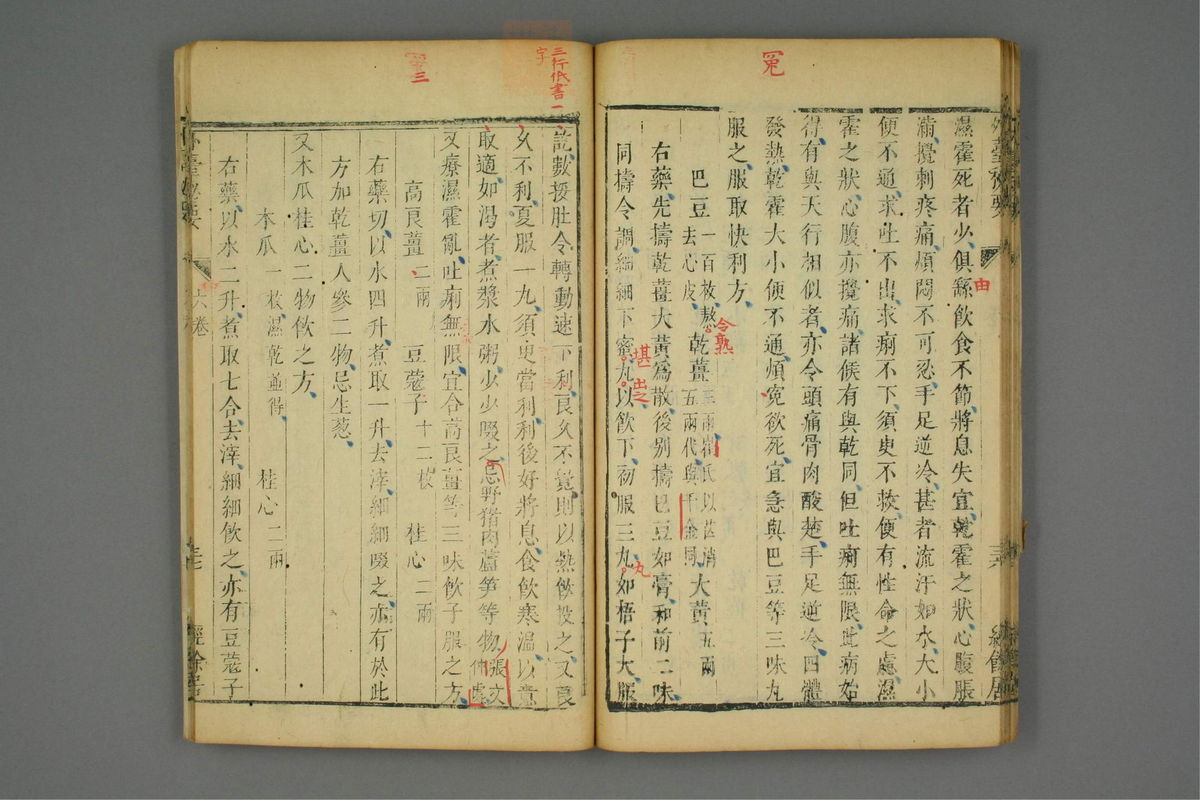 冤
由
外臺祕要
三六
經餘居
濕霍死者少俱繇飲食不節將息失宜乾霍之狀心腹脹
滿攪刺疼痛煩悶不可忍手足逆冷甚者流汗如水大小
便不通求吐不出求痢不下須臾不救便有性命之慮濕
霍之狀心腹亦攪痛諸候有與乾同但吐痢無限此病始
得有與天行相似者亦令頭痛骨肉酸楚手足逆冷四體
發熱乾霍大小便不通煩寃欲死宜急與巴豆等三味丸
服之服取快利方
巴豆一百枚熬去心皮 乾薑三兩崔氏以芒消五兩代與千金同 大黃五兩
令熟
右藥先擣乾薑大黃為散後别擣巴豆如膏和前二味
同擣令調細細下蜜丸以飲下初服三丸如梧子大服
堪出之
丸
三行低書一字
訖數挼肚令轉動速下利良久不覺則以熱飲投之又良
久不利夏服一丸須臾當利利後好將息食飲寒溫以意
取適如渴者煮漿水粥少少啜之忌野猪肉蘆笋等物張文仲處
又療濕霍亂吐痢無限宜合高良薑等三味飲子服之方
高良薑二兩 豆蔻子十二枚 桂心二兩
右藥切以水四升煮取一升去滓細細啜之亦有於此
方加乾薑人參二物忌生葱
又木瓜桂心二物飲之方
本瓜一枚濕乾並得 桂心二兩
右藥以水二升煮取七合去滓細細飲之亦有豆蔻子
外臺祕要
六卷
三七
經餘居